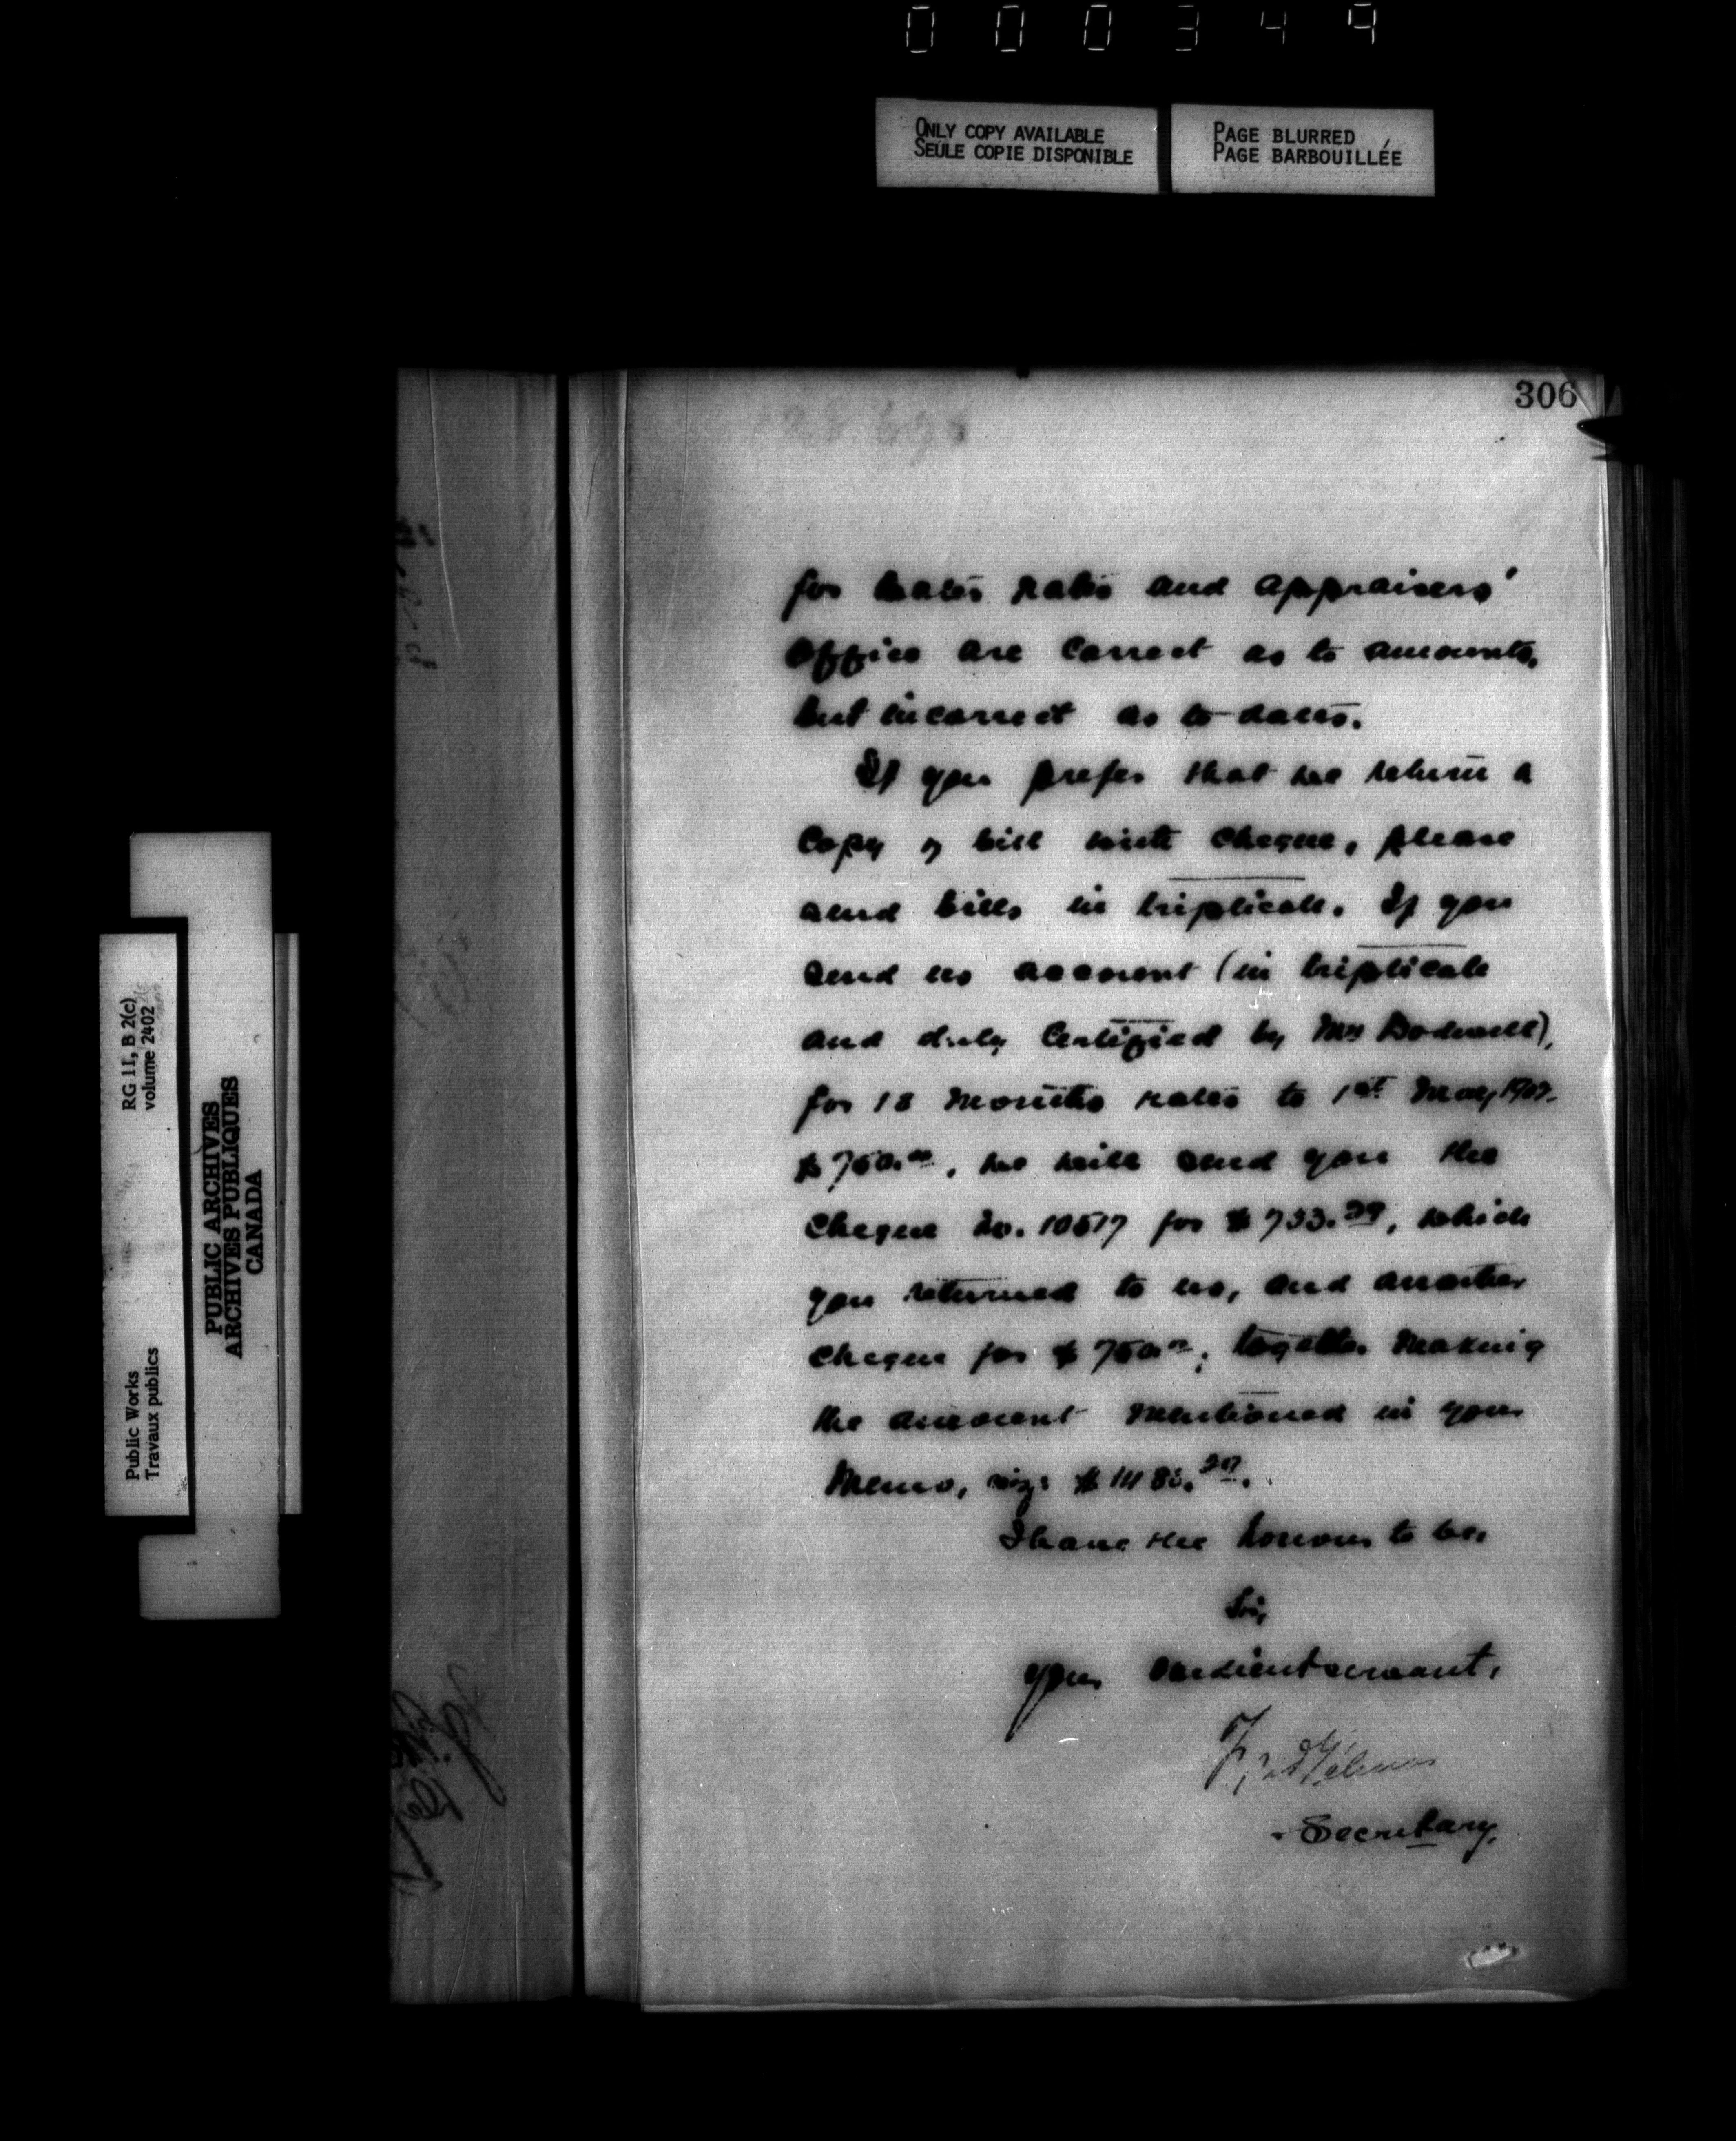 000349
ONLY COPY AVAILABLE
SEULE COPIE DISPONIBLE
PAGE BLURRED
PAGE BARBOUILLÉE
306
for water rates and appraisers'
office are correct as to amounts,
but incorrect as to dates.
If you prefer that we return a
copy of bill with cheque, please
send bills in triplicate. If you
send us account (in triplicate
and duly certified by Mr Bodwell),
for 18 months rates to 1st May 1907.
$750.00, we will send you the
cheque No. 10517 for $733.39, which
you returned to us, and another
cheque for $750.00; together making
the amount mentioned in your
memo, viz:
I have the honour to be,
Sir,
Your obedient servant,
Fred Gélinas
Secretary.
Public Works
Travaux publics
RG 11, B 2(c)
volume 2402
PUBLIC ARCHIVES
ARCHIVES PUBLIQUES
CANADA